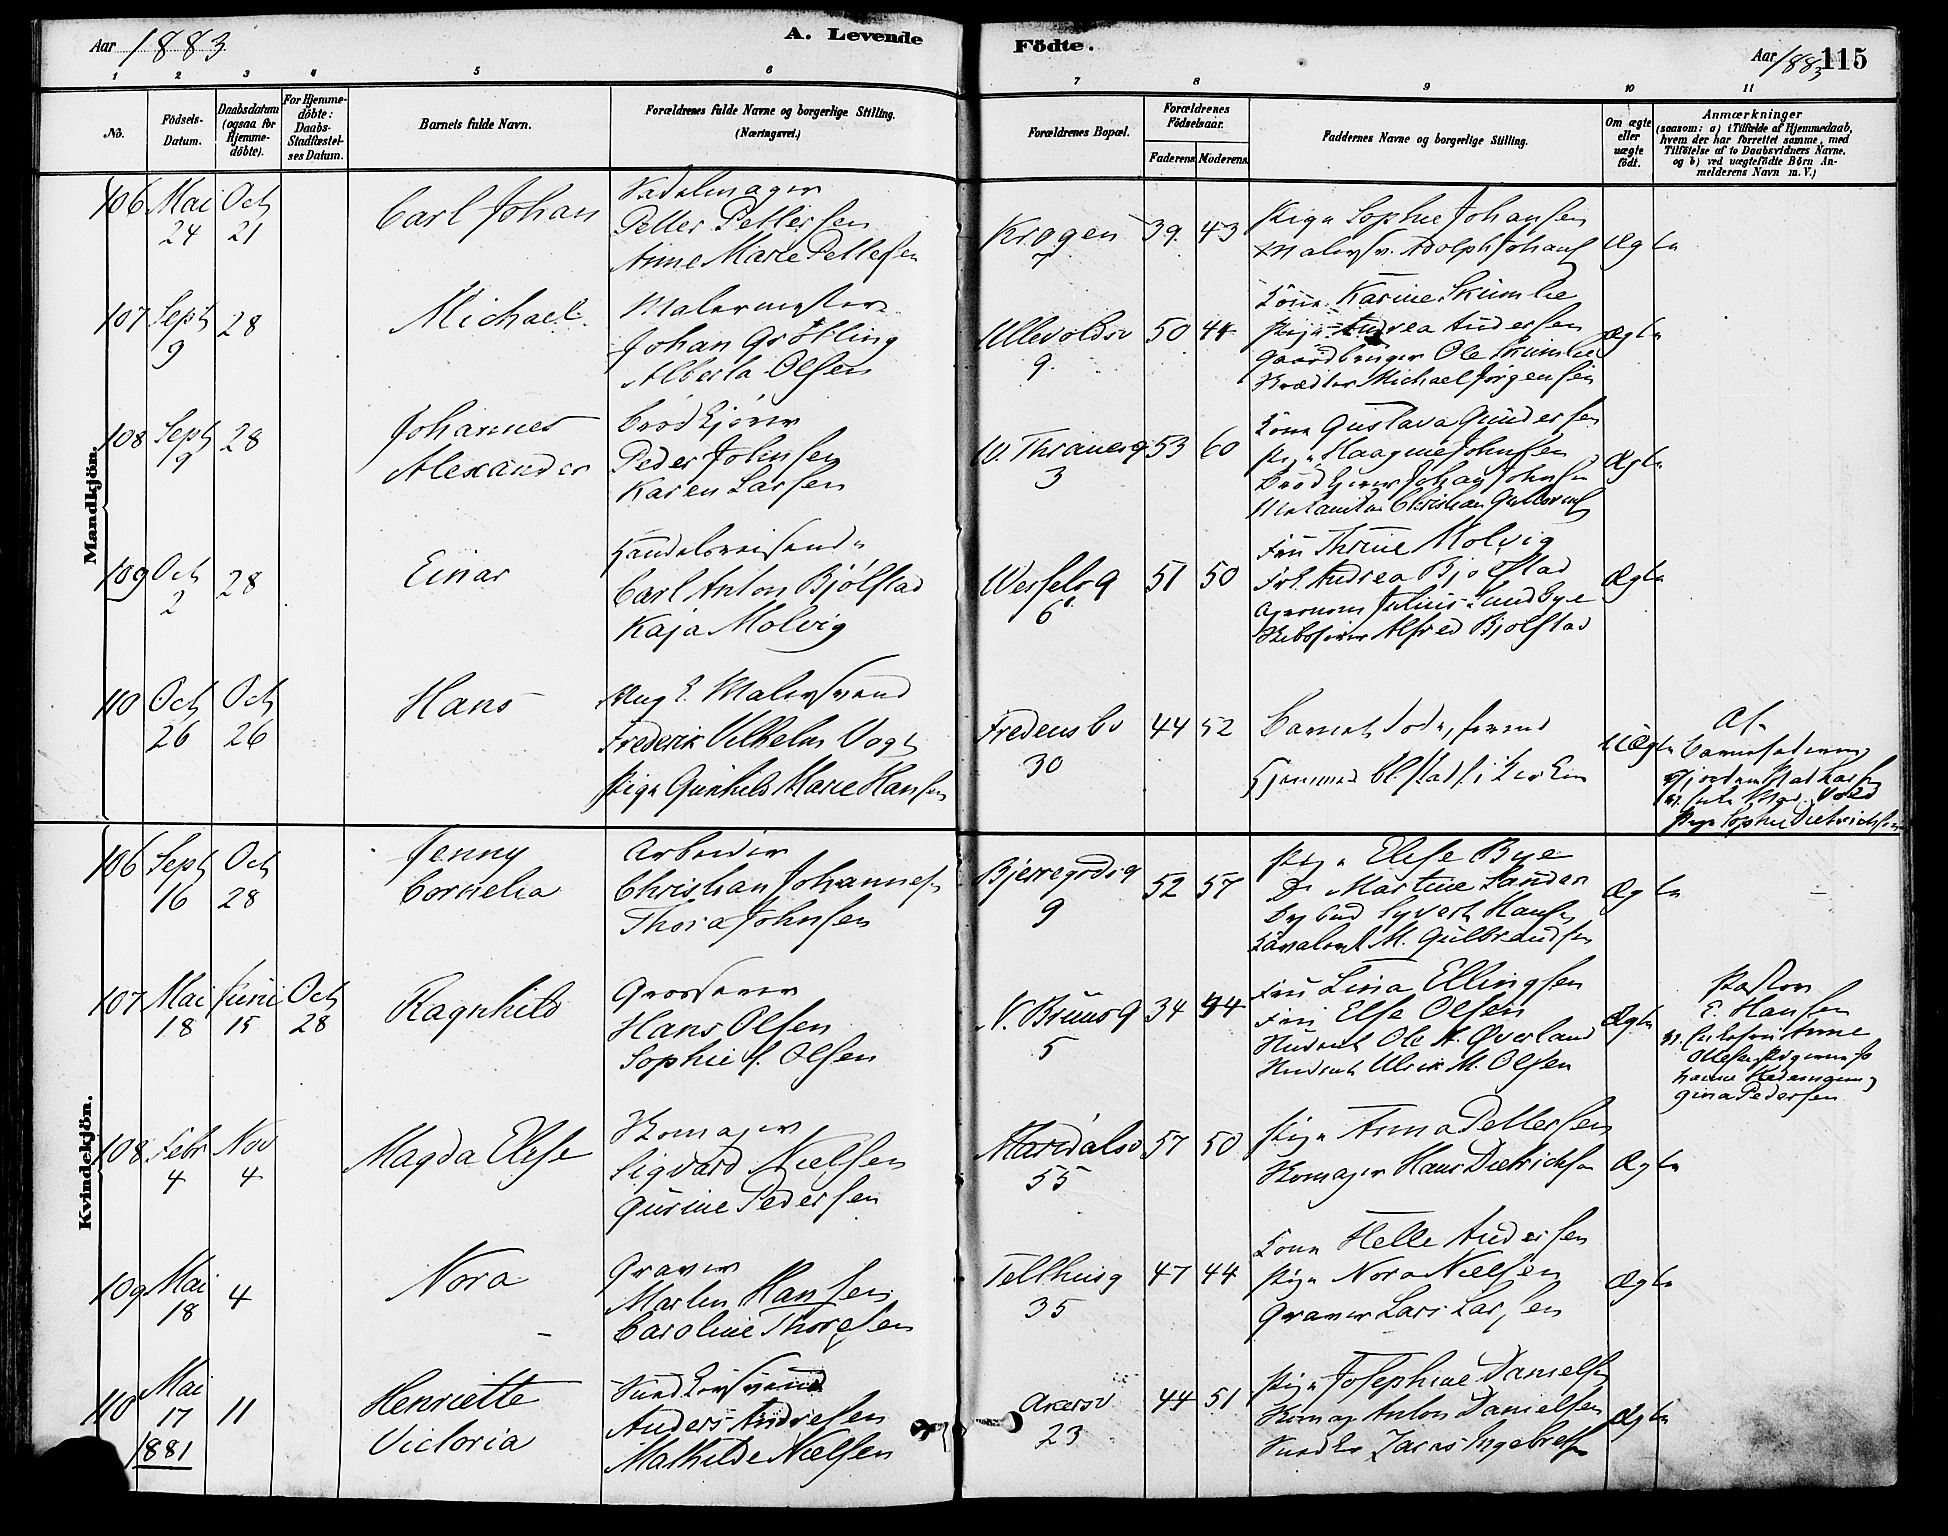 Aar 1883
A. Levende
Födte.
Aar 1883
115
1 2 3 4 5 6 7 8 9 10 11
No.
Födsels-Datum.
Daabsdatum (ogsaa for Hjemme-döbte).
For Hjemme-döbte: Daabs-Stadfæstel-ses Datum.
Barnets fulde Navn.
Forældrenes fulde Navne og borgerlige Stilling.
(Næringsvei.)
Forældrenes Bopæl.
Forældrenes Födselsaar.
Faderens Moderens
Faddernes Navne og borgerlige Stilling.
Om ægte eller uægte födt.
Anmærkninger
(saasom: a) i Tilfælde af Hjemmedaab,
hvem der har forrettet samme, med
Tilföielse af to Daabsvidners Navne,
og b) ved uægtefödte Börn An-
melderens Navn m. V.)
Mandkjön.
106 Mai 24 Oct 21
Carl Johan
Sadelmager
Petter Pettersen
Anne Marie Pettersen
Krogen 7
39 43
Pige Sophie Johansen
Malersv. Adolph Johans
Ægte
107 Sept 9 28
Michael
Malermester
Johan Grötling
Alberta Olsen
Ullevoldsv 9
50 44
Kone Karine Skumlie
Pige Andrea Andersen
Gaardbruger Ole Skumlie
Skrædder Michael Jörgensen
Ægte
108 Sept 9 28
Johannes
Alexander
Brödkjörer
Peder Johnsen
Karen Larsen
W. Thranesg 3
53 60
Kone Gustava Gundersen
Pige Haagine Johnsen
Brödkjører Johan Johnsen
Ægte
109 Oct 2 28
Einar
Handelsreisende
Carl Anton Bjölstad
Kaja Molvig
Wesselsg 6
51 50
Fru Thrine Molvig
Frk Andrea Bjølstad
Agronom Julius Lundbye
Skibsfører Alfred Bjölstad
Ægte
110 Oct 26 Oct 26
Hans
Ung. Malersvend
Frederik Vilhelm Vogt
Pige Gunhild Marie Hansen
Fredensbv 30
44 52
Barnet döde, forend
Hjemmed bl stadf i Kirken
Uægte
Af
Barnefaderen
Pige Sophie Dietrichsen
Kvindekjön.
106 Sept 16 Oct 28
Jenny
Cornelia
Arbeider
Christian Johannes
Thora Johnsen
Bjerregrdsg 9
52 57
Pige Elise Bye
Do Martine Sander
Bybud Syvert Hansen
M. Gulbrandsen
Ægte
107 Mai 18 Juni 15 Oct 28
Ragnhild
Grosserer
Hans Olsen
Sophie f. Olsen
N. Bruunsg 5
34 44
Fru Lina Ellingsen
Fru Else Olsen
Student Ole A. Øverland
Student Ulrik M. Olsen
Ægte
Pastor
E. Hansen
Anne
Ollesen
gina Pedersen
108 Febr 4 Nov 4
Magda Elise
Skomager
Sigvard Nielsen
Gurine Pedersen
Maridalsv 55
57 50
Pige Anna Pettersen
Skomager Hans Dietrichsen
Ægte
109 Mai 18 4
Nora
Graver
Martin Hansen
Caroline Thoresen
Telthusg 35
47 44
Kone Helle Andersen
Pige Nora Nielsen
Graver Lars Larsen
Ægte
110 Mai 17 1881 11
Henriette
Victoria
Snedkersvend
Anders Andresen
Mathilde Nielsen
Akersv 23
44 51
Pige Josephine Danielsen
Skomag Anton Danielsen
Snedker Jacas Ingebretsen
Ægte